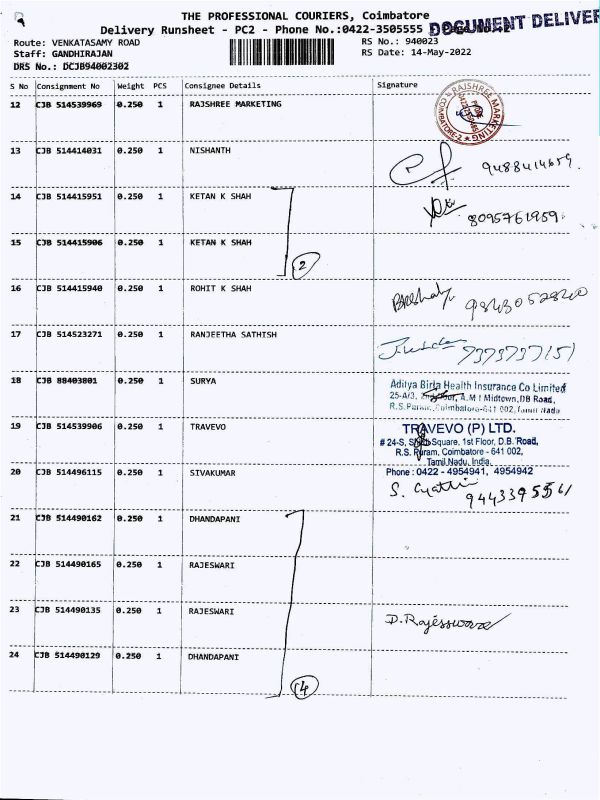 THE PROFESSIONAL COURIERS, Coimbatore
Delivery Runsheet - PC2 - Phone No.:0422-3505555
DOCUMENT DELIVER
Route: VENKATASAMY ROAD RS No.: 940023
Staff: GANDHIRAJAN RS Date: 14-May-2022
DRS No.: DCJB94002302
S No Consignment No Weight PCS Consignee Details Signature
12 CJB 514539969 0.250 1 RAJSHREE MARKETING
RAJSHREE MARKETING
COIMBATORE-2
13 CJB 514414031 0.250 1 NISHANTH
9488414659.
14 CJB 514415951 0.250 1 KETAN K SHAH
8095761959.
15 CJB 514415906 0.250 1 KETAN K SHAH
2
16 CJB 514415940 0.250 1 ROHIT K SHAH
17 CJB 514523271 0.250 1 RANJEETHA SATHISH
7373737151
18 CJB 88403801 0.250 1 SURYA
Aditya Birla Health Insurance Co Limited
25-A/3, 2nd Floor, A.M I Midtown, DB Road,
R.S.Puram, Coimbatore-641 002, Tamil Nadu
19 CJB 514539906 0.250 1 TRAVEVO
TRAVEVO (P) LTD.
# 24-S, Square, 1st Floor, D.B. Road,
R.S. Puram, Coimbatore - 641 002,
Tamil Nadu, India.
Phone : 0422 - 4954941, 4954942
20 CJB 514496115 0.250 1 SIVAKUMAR
S.
21 CJB 514490162 0.250 1 DHANDAPANI
22 CJB 514490165 0.250 1 RAJESWARI
23 CJB 514490135 0.250 1 RAJESWARI
D. Rajesswarae
24 CJB 514490129 0.250 1 DHANDAPANI
4